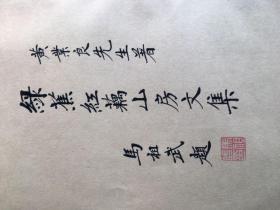 黄業良先生著
綠蕉紅藕山房文集
馬祖武題